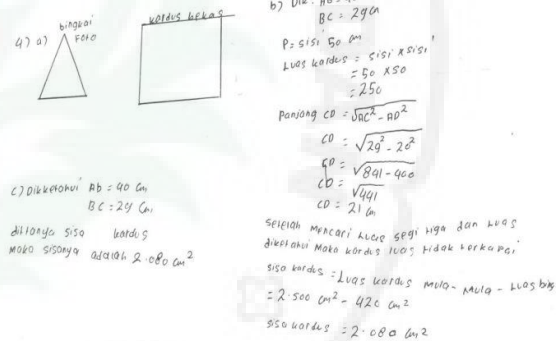 4) a)
bingkai
Foto
kardus bekas
c) Diketahui Ab = 40 cm
BC = 29 cm
ditanya sisa kardus
Maka sisanya adalah 2.080 cm²
b) Dik.
BC = 29 cm
P = sisi 50 cm
Luas kardus = sisi x sisi
= 50 x 50
= 250
Panjang CD = √AC² - AD²
CD = √29² - 20²
CD = √841 - 400
CD = √441
CD = 21 cm
setelah mencari Luas segi tiga dan Luas
diketahui Maka kardus luas tidak terkapai
sisa kardus = Luas kardus mula-mula - Luas bin
= 2.500 cm² - 420 cm²
sisa kardus = 2.080 cm²